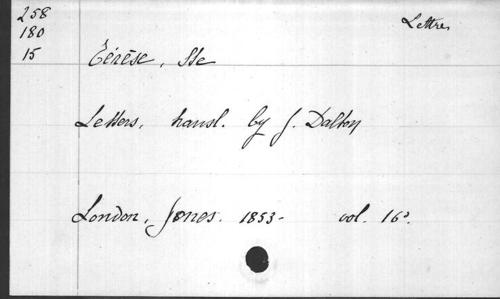 258
Lettres
180
15
Térèse, Ste
Letters, transl. by J. Dalton
London, Jones. 1853- vol. 16°.